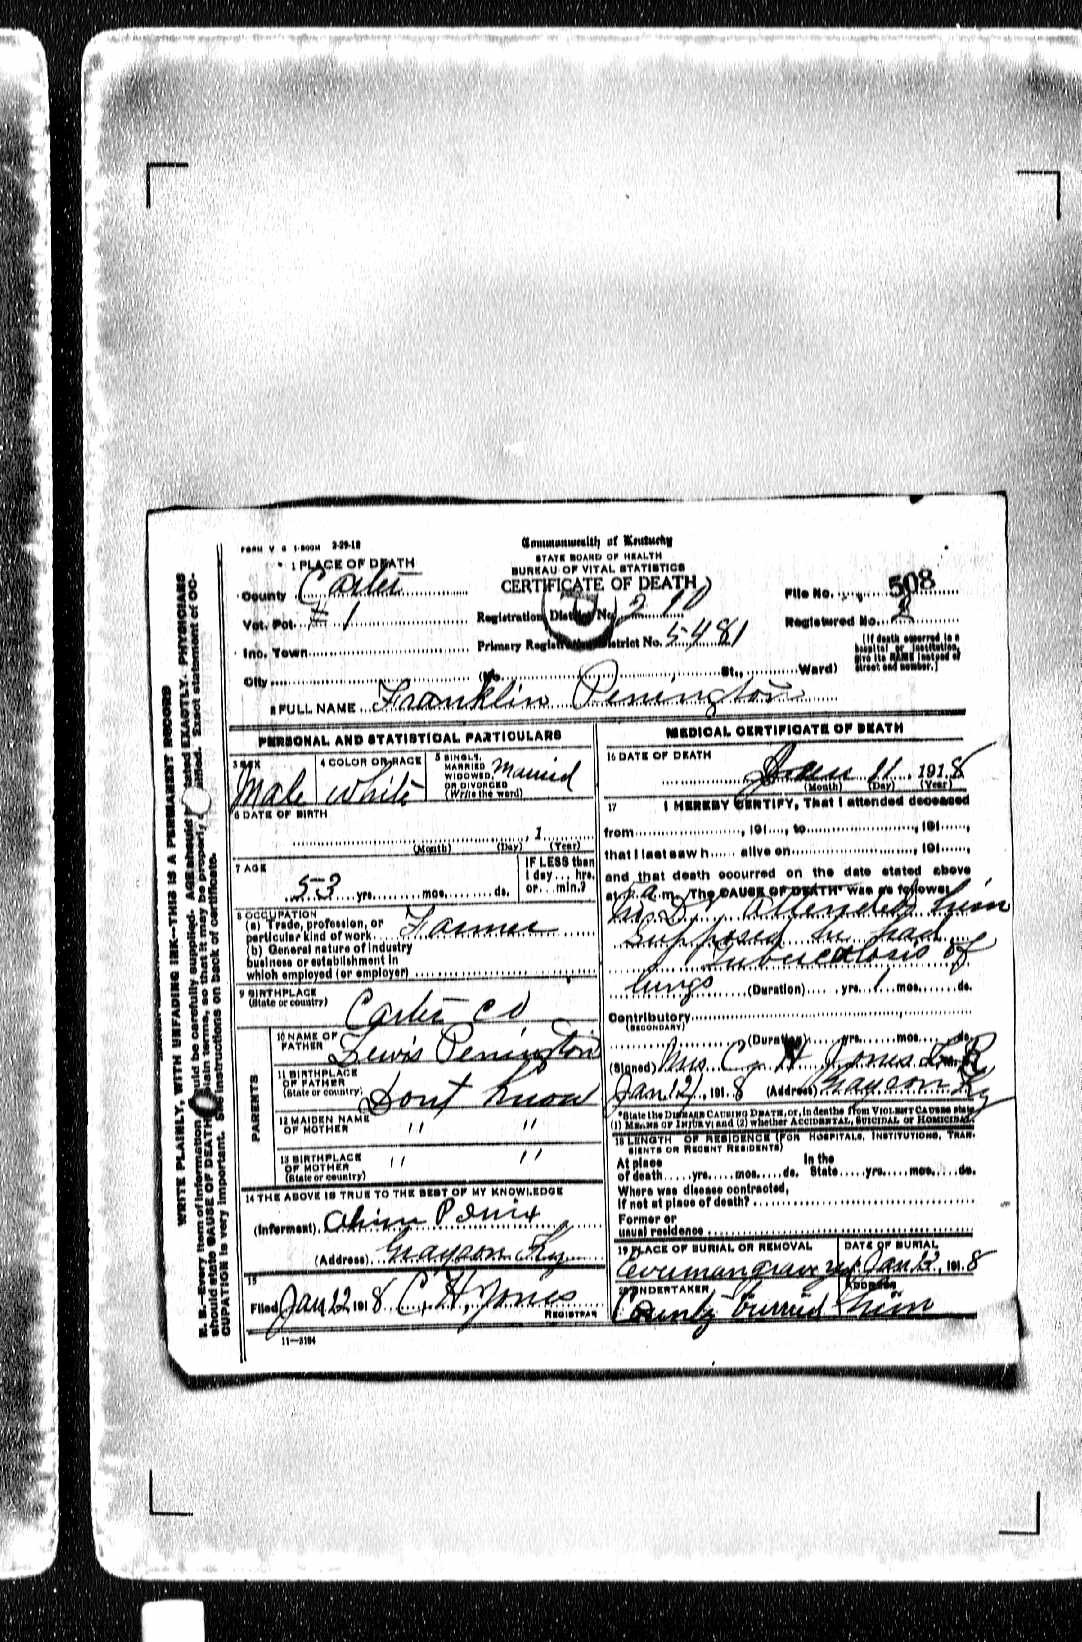 FORM V S 1-500M 3-29-18
Commonwealth of Kentucky
STATE BOARD OF HEALTH
BUREAU OF VITAL STATISTICS
CERTIFICATE OF DEATH
1 PLACE OF DEATH
County Carter
Vot. Pct. # 1
Inc. Town
City
Registration District No. 210
Primary Registration District No. 5481
(No. St., Ward)
File No. 508
Registered No. 2
[If death occurred in a hospital or institution, give its NAME instead of street and number.]
2 FULL NAME Franklin Penington
PERSONAL AND STATISTICAL PARTICULARS
3 SEX Male
4 COLOR OR RACE White
5 SINGLE, MARRIED WIDOWED, OR DIVORCED (Write the word) Married
6 DATE OF BIRTH
, 1
(Month) (Day) (Year)
7 AGE
53 yrs. mos. ds.
IF LESS than 1 day hrs. or min.?
8 OCCUPATION
(a) Trade, profession, or particular kind of work Farmer
(b) General nature of industry
business or establishment in
which employed (or employer)
9 BIRTHPLACE
(State or country) Carter CO
PARENTS
10 NAME OF FATHER Lewis Penington
11 BIRTHPLACE OF FATHER (State or country) Dont Know
12 MAIDEN NAME OF MOTHER " "
13 BIRTHPLACE OF MOTHER (State or country) " "
14 THE ABOVE IS TRUE TO THE BEST OF MY KNOWLEDGE
(Informant)
(Address) Grayson Ky
15
Filed Jan 12 1918 C. H. Jones
REGISTRAR
11—3184
MEDICAL CERTIFICATE OF DEATH
16 DATE OF DEATH
Jan 11, 1918
(Month) (Day) (Year)
17 I HEREBY CERTIFY, That I attended deceased
from , 191 , to , 191 ,
that I last saw h alive on , 191 ,
and that death occurred on the date stated above
at m. The CAUSE OF DEATH was as follows:
M. D. attended him
Supposed he had
Tuberculosis of
lungs (Duration) yrs. 1 mos. ds.
Contributory
(SECONDARY)
(Duration) yrs. mos. ds.
(Signed) Mrs C. H Jones
Jan 12, 1918 (Address) Grayson Ky
*State the DISEASE CAUSING DEATH, or, in deaths from VIOLENT CAUSES state
(1) MEANS OF INJURY; and (2) whether ACCIDENTAL, SUICIDAL or HOMICIDAL
18 LENGTH OF RESIDENCE (FOR HOSPITALS, INSTITUTIONS, TRANSIENTS OR RECENT RESIDENTS)
At place of death yrs. mos. ds. In the State yrs. mos. ds.
Where was disease contracted,
if not at place of death?
Former or
usual residence
19 PLACE OF BURIAL OR REMOVAL
DATE OF BURIAL
Jan 12, 1918
20 UNDERTAKER
ADDRESS
County burried him
N. B.—Every item of information should be carefully supplied. AGE should be stated EXACTLY. PHYSICIANS
should state CAUSE OF DEATH in plain terms, so that it may be properly classified. Exact statement of OC-
CUPATION is very important. See instructions on back of certificate.
WRITE PLAINLY, WITH UNFADING INK--THIS IS A PERMANENT RECORD